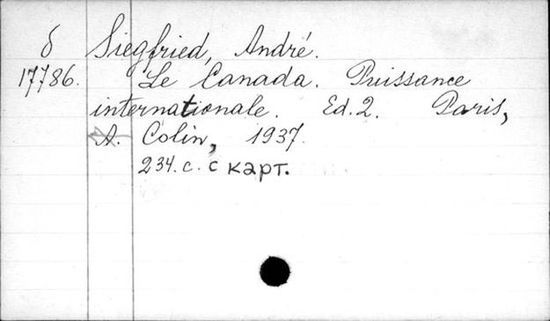 б Siegfried, André.
17786. Le Canada. Puissance
internationale. Ed. 2. Paris,
A. Colin, 1937.
234. с. с карт.